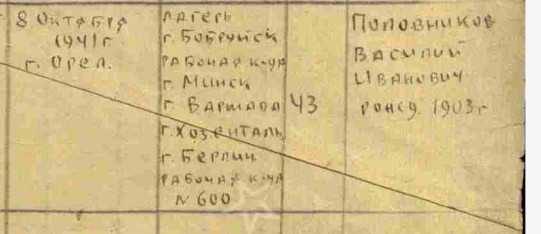 8 Октября
1941 г.
г. Орел.
лагерь
г. Бобруйск
рабочая к-да
г. Минск
г. Варшава
г. Хозениталь
г. Берлин
рабочая к-да
N 600
43
Половников
Василий
Иванович
рожд. 1903 г